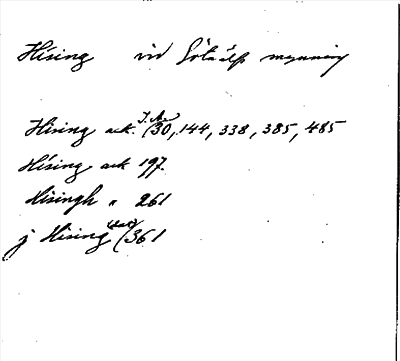 Hising vid Göta älfs mynning
Hising ack. (30, 144, 338, 385, 485
Hising ack 197.
Hisingh " 261
j Hising (dat) (361